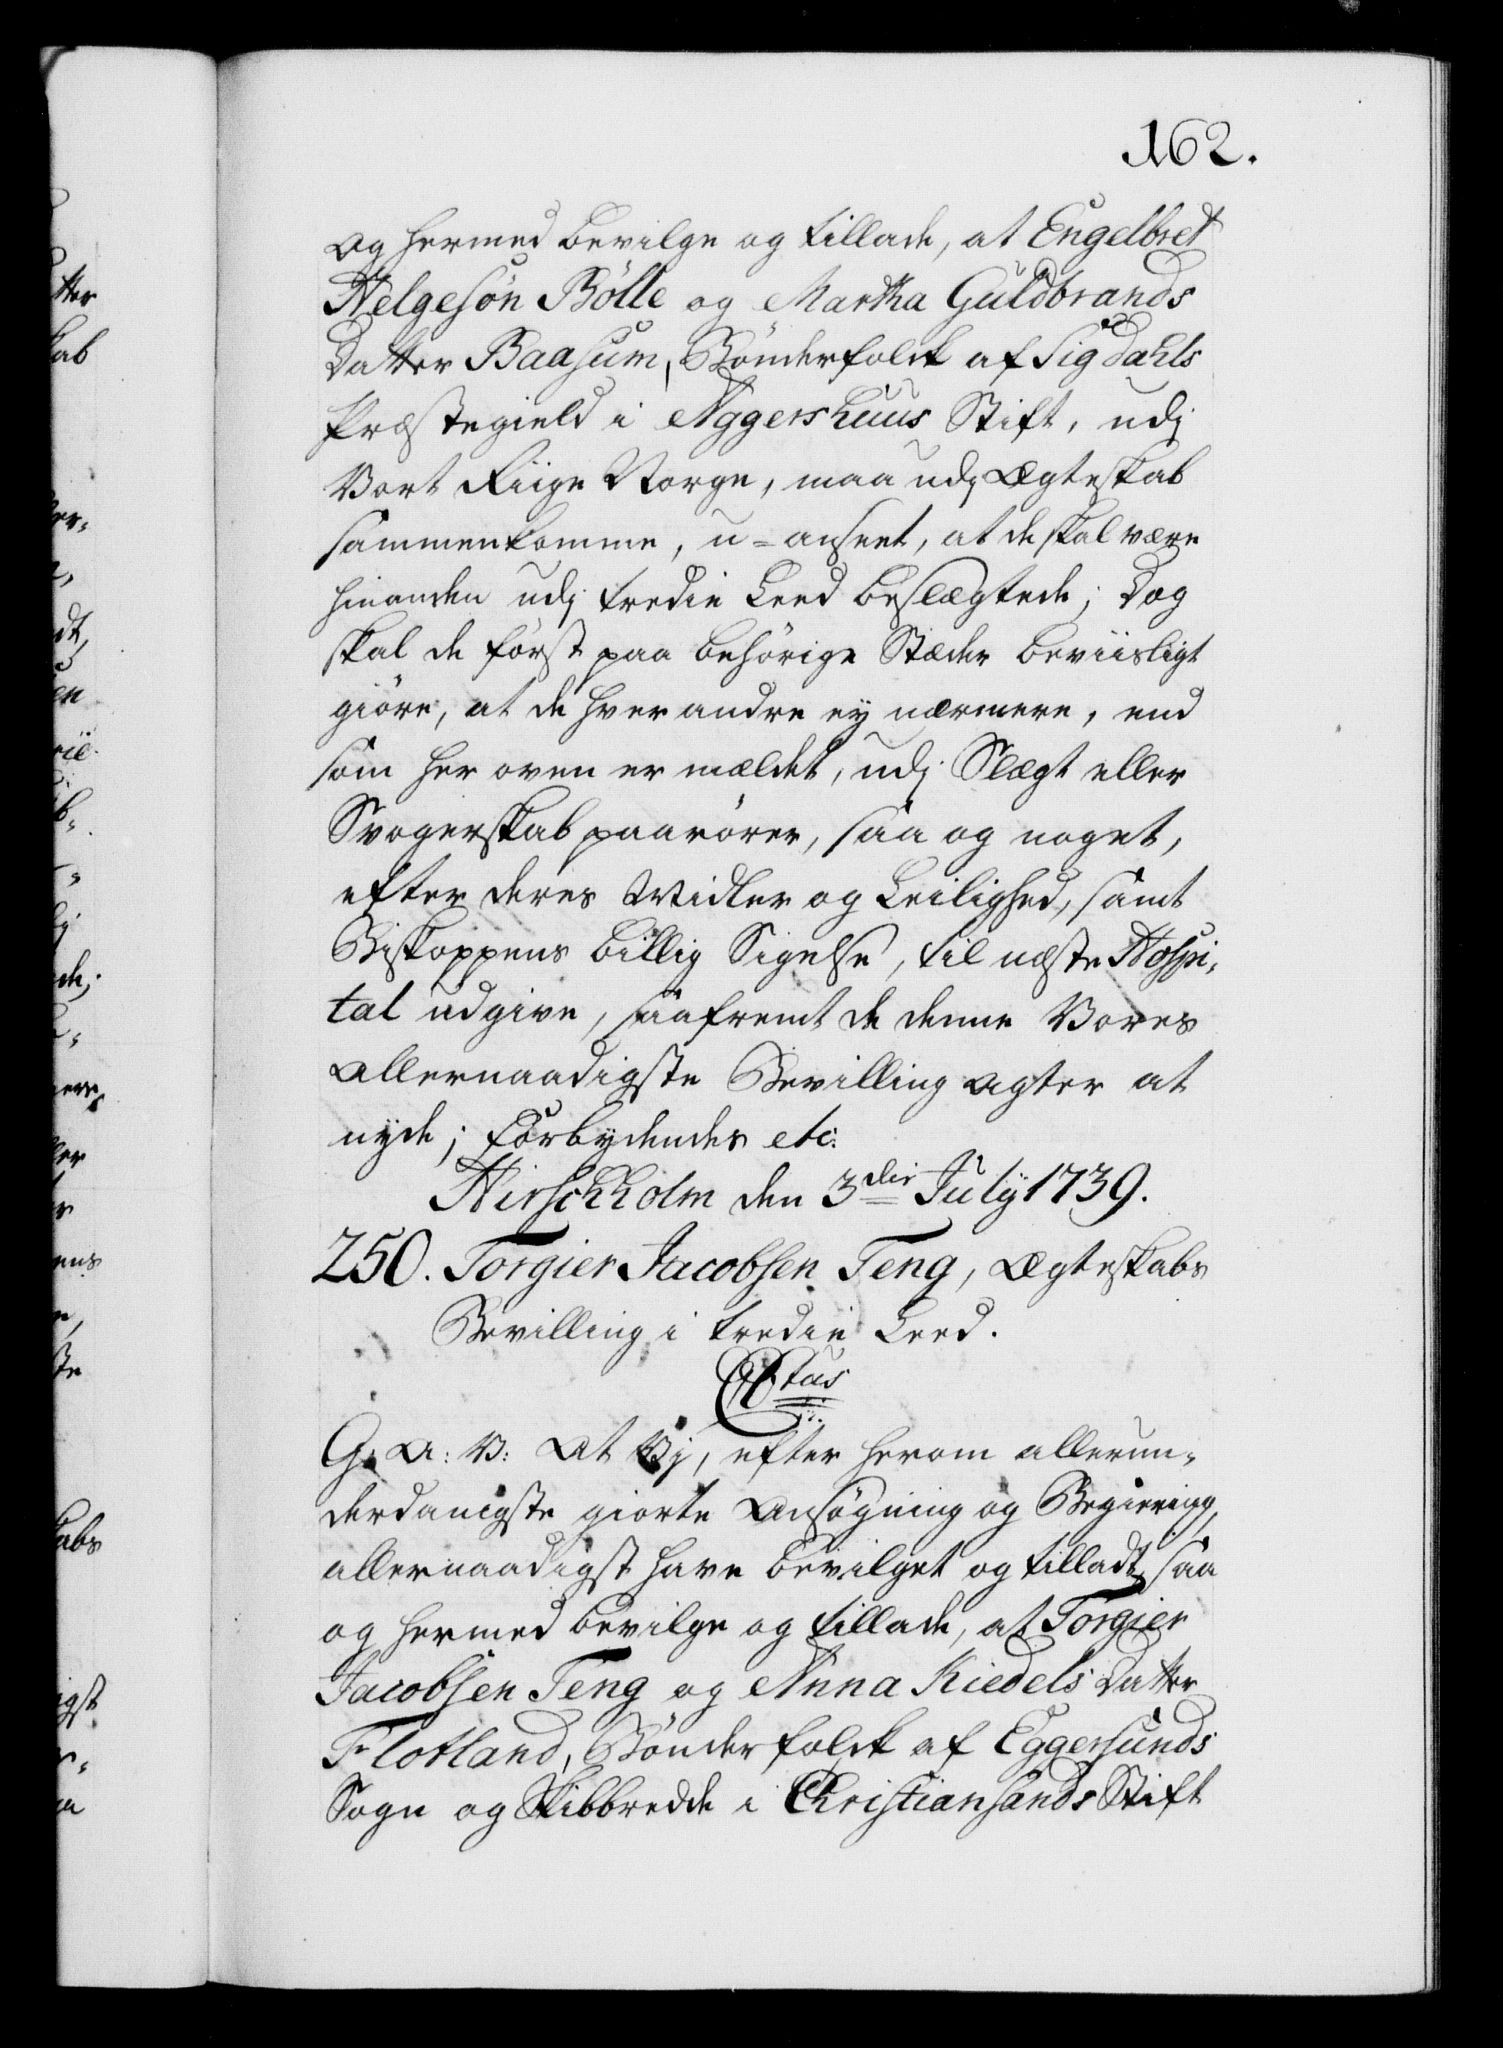 162.
og hermed bevilge og tillade, at Engelbret
Helgesøn Bølle og Martha Guldbrands
Datter Baasum, Bønderfolck af Sigdahls
Præstegield i Aggershuus Stift, udj
Vort Riige Norge, maa udj Ægteskab
sammenkomme, u=anseet, at de skal være
hinanden udj tredie Leed beslægtede; Dog
skal de først paa behörige Stæder beviisligt
giöre, at de hverandre ey nærmere, end
som her oven er mældet, udj Slægt eller
Svogerskab paarører, saa og noget,
efter deres Midler og Leilighed, samt
Biskoppens billig Sigelse, til næste Hospi-
tal udgive, saafremt de denne Vores
allernaadigste Bevilling agter at
nyde; Forbydendes etc:
Hirschholm den 3die July 1739.
250. Torgier Jacobsen Teng, Ægteskabs
Bevilling i tredie Leed.
C 6tus
G: A: V: At Vj, efter herom allerun-
derdanigste giorte Ansøgning og Begiering,
allernaadigst have bevilget og tilladt, saa
og hermed bevilge og tillade, at Torgier
Jacobsen Teng og Anna Kiedels Datter
Flotland, Bønderfolck af Eggersunds
Sogn og Skibbredde i Christiansands Stift